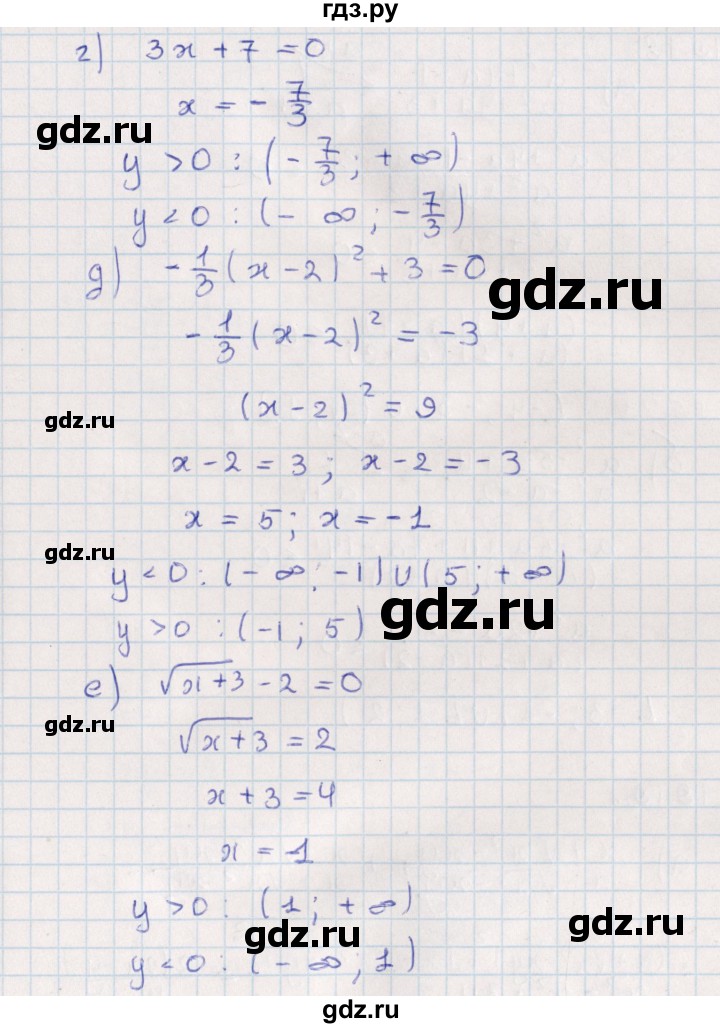 гдз.ру
г) 3x + 7 = 0
x = - 7/3
gdz.ru
y > 0 : (- 7/3 ; + ∞)
y < 0 : (- ∞ ; - 7/3)
д) - 1/3 (x - 2)² + 3 = 0
gdz.ru
- 1/3 (x - 2)² = -3
(x - 2)² = 9
gdz.ru
x - 2 = 3 ; x - 2 = - 3
x = 5 ; x = - 1
gdz.ru
y < 0 : (- ∞ ; -1) ∪ (5 ; + ∞)
gdz.ru
y > 0 : (-1 ; 5)
е) √x+3 - 2 = 0
gdz.ru
√x+3 = 2
x + 3 = 4
x = 1
y > 0 : (1 ; + ∞)
gdz.ru
gdz.ru
y < 0 : (- ∞ ; 1)
gdz.ru